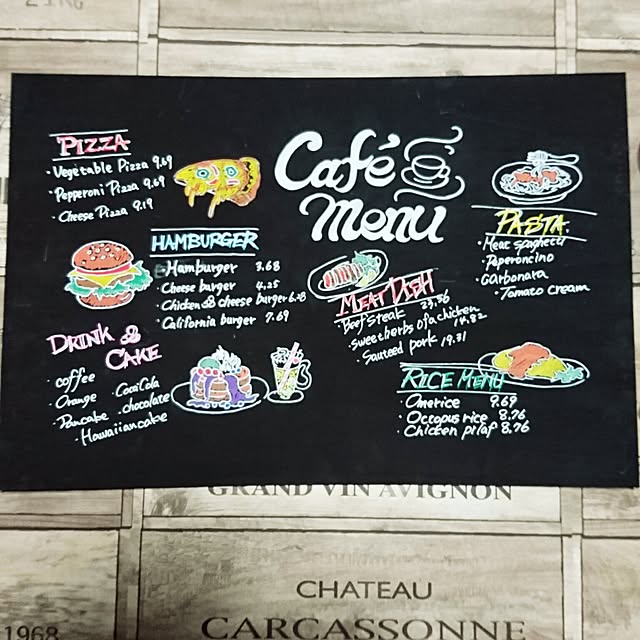 Café
Menu
PIZZA
· Vegetable Pizza 9.69
· Pepperoni Pizza 9.69
· Cheese Pizza 9.19
HAMBURGER
Hamburger 3.68
· Cheese burger 4.25
· Chicken & cheese burger 6.18
· California burger 7.69
DRINK &
CAKE
· coffee
· Orange CocaCola
· Pancake chocolate
· Hawaiiancake
MEAT DISH
· Beefsteak 23.56
· sweetherbs of a chicken 14.82
· Sauteed pork 19.31
PASTA
· Meat spaghetti
· Peperoncino
· Carbonara
· Tomato cream
RICE MENU
· Omerice 9.69
· Octopus rice 8.76
· Chicken pilaf 8.76
GRAND VIN AVIGNON
CHATEAU
CARCASSONNE
1968